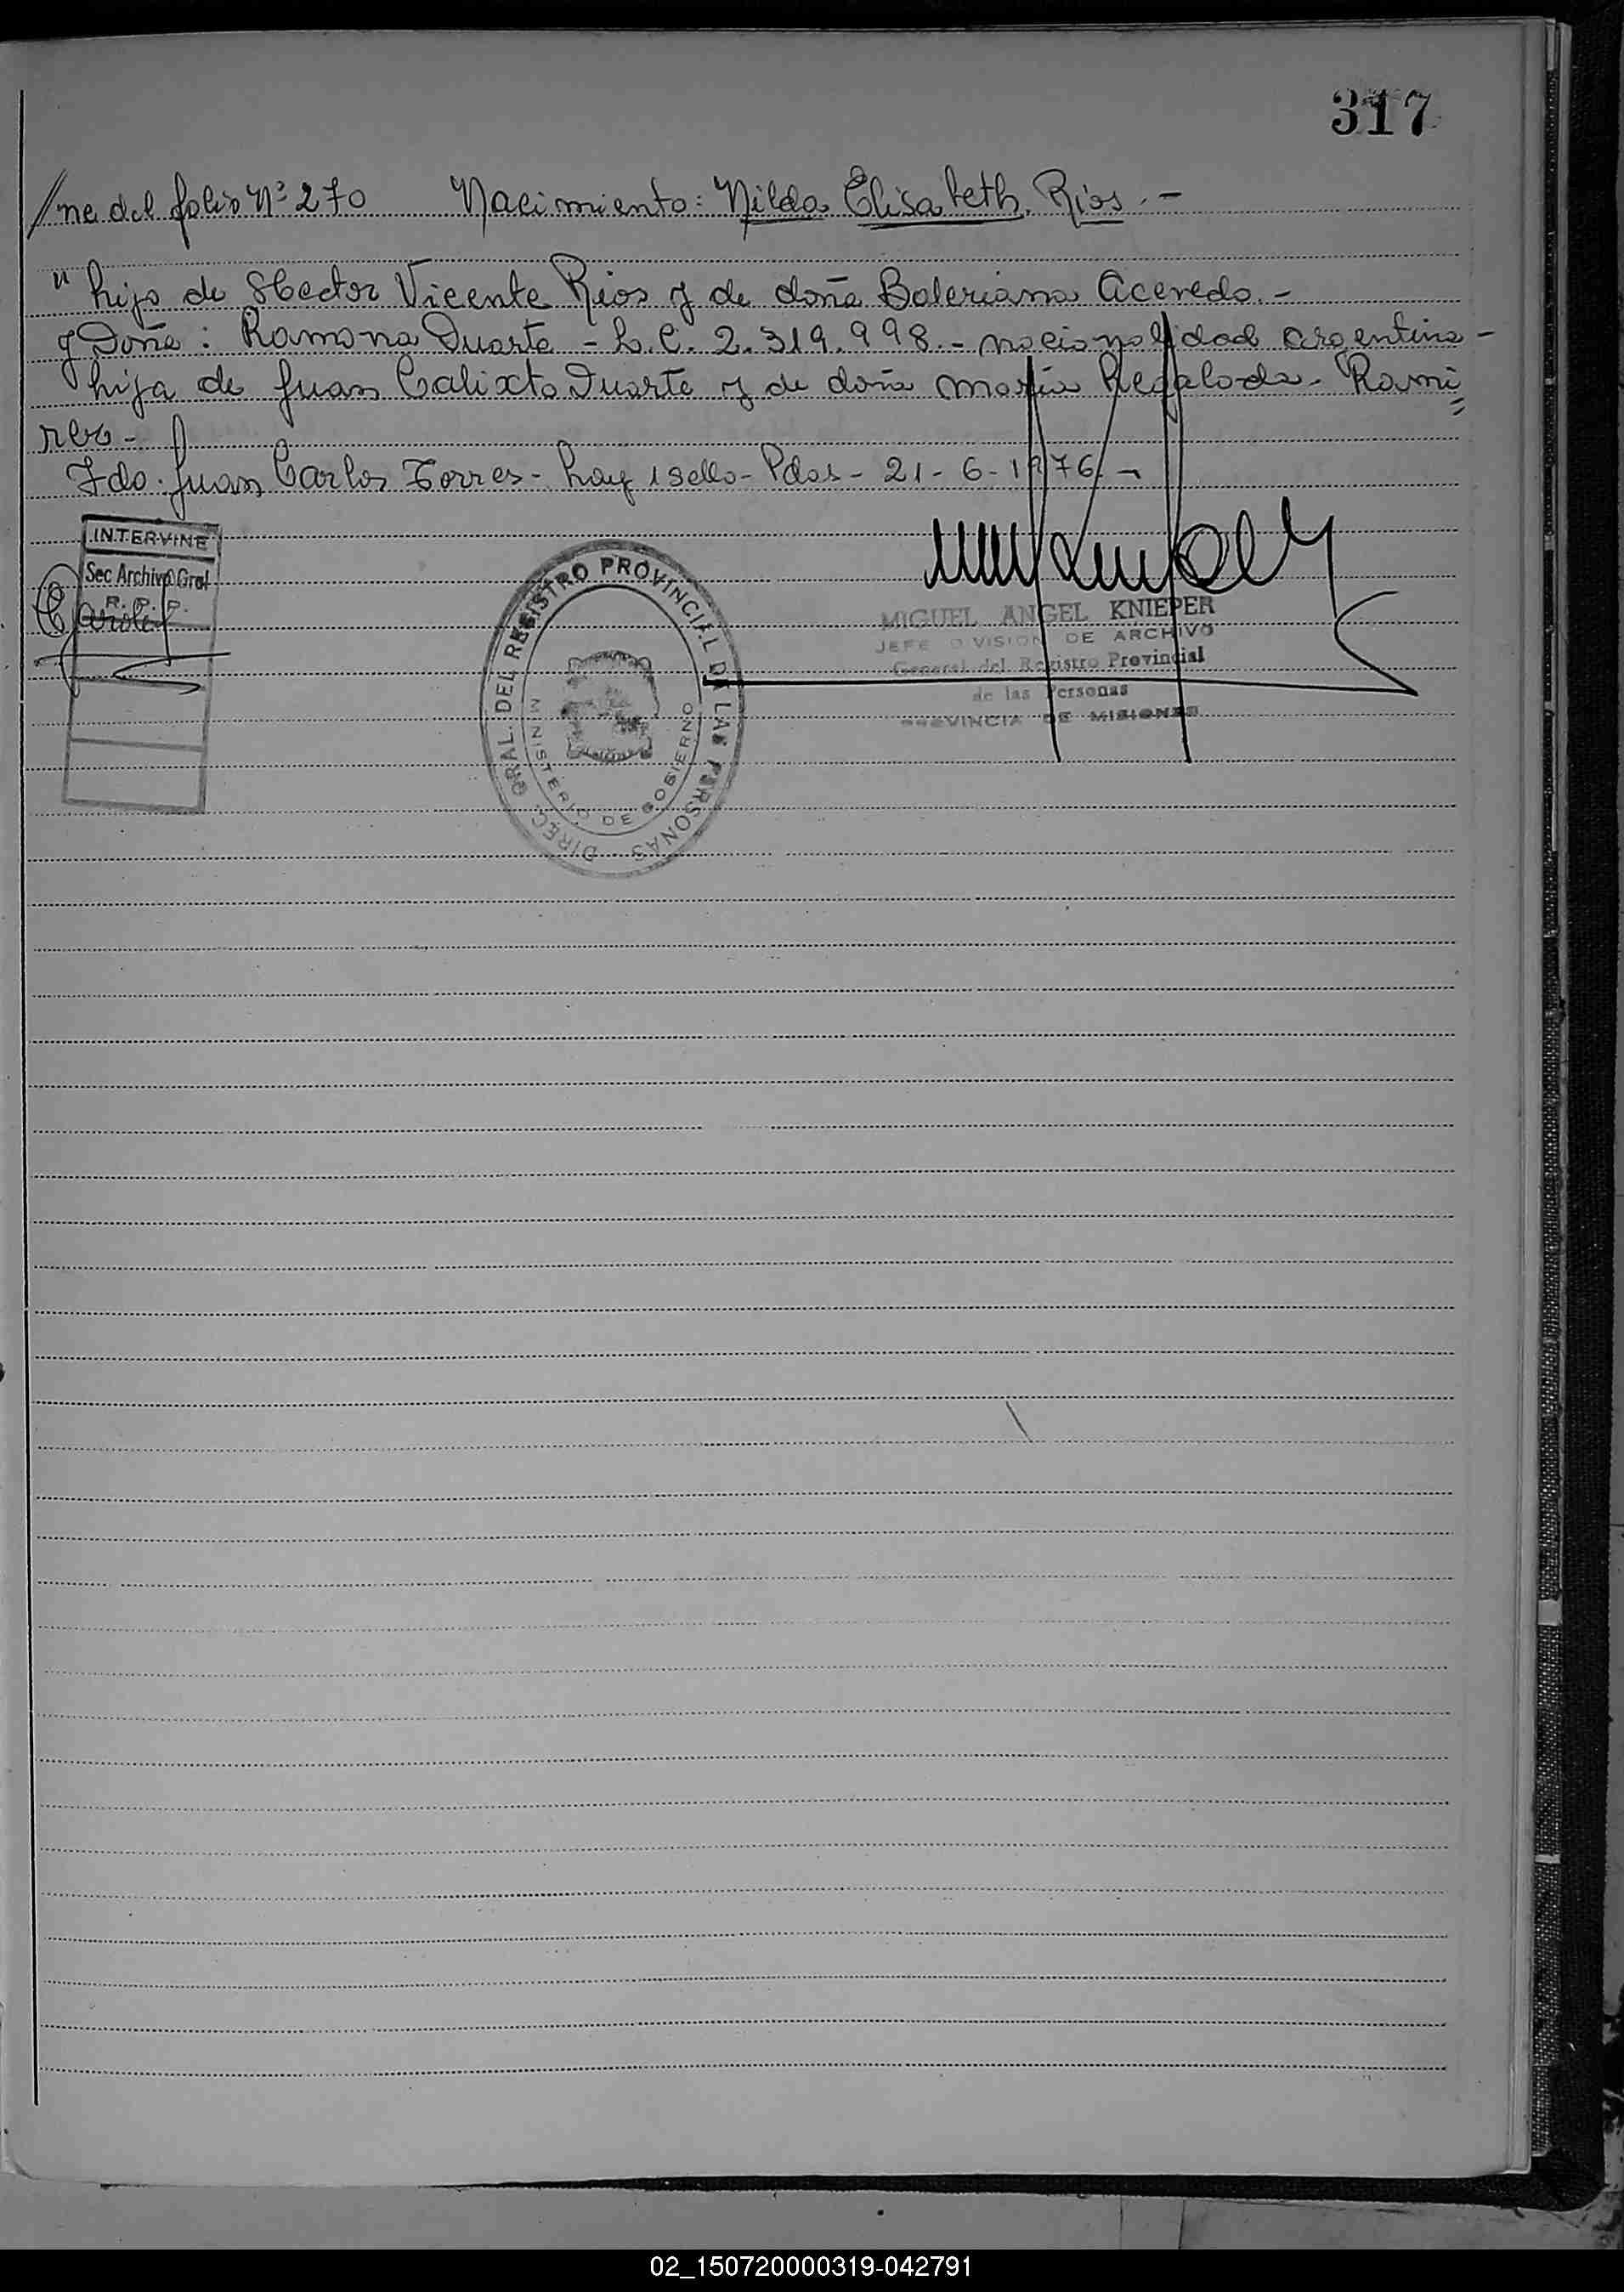 317
/ne del folio Nº 270 Nacimiento: Nilda Elisabeth Rios.-
" hijo de Hector Vicente Rios y de doña Baleriana Acevedo.-
y Doña: Ramona Duarte - L.C. 2.319.998.- nacionalidad argentina-
hija de Juan Calixto Duarte y de doña María Regalada- Rami=
rez-
Fdo. Juan Carlos Torres- hay 1 sello- Pdas- 21-6-1976.-
INTERVINE
Sec Archivo Gral
R. P. P.
DIREC. GRAL. DEL REGISTRO PROVINCIAL DE LAS PERSONAS
MINISTERIO DE GOBIERNO
MIGUEL ANGEL KNIEPER
JEFE DIVISION DE ARCHIVO
General del Registro Provincial
de las Personas
PROVINCIA DE MISIONES
02_150720000319-042791